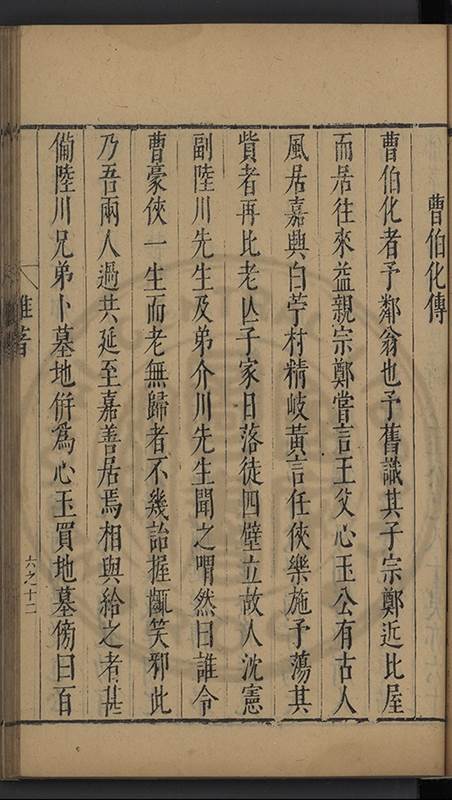 曹伯化傳
曹伯化者予鄰翁也予舊識其子宗鄭近比屋
而居往來益親宗鄭嘗言王父心玉公有古人
風居嘉興白苧村精岐黃言任俠樂施予蕩其
貲者再比老亾子家日落徒四壁立故人沈憲
副陸川先生及弟介川先生聞之喟然曰誰令
曹豪俠一生而老無歸者不幾詒握齱笑邪此
乃吾兩人過共延至嘉善居焉相與給之者甚
備陸川兄弟卜墓地併為心玉買地墓傍曰百
雜著
六之十二